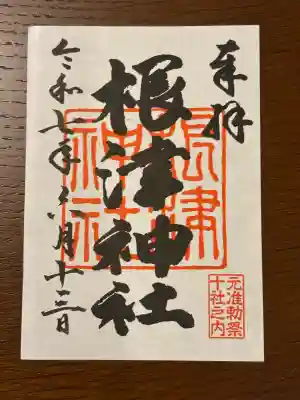 奉拝
根津神社
根津神社
令和七年六月十三日
元准勅祭
十社之内